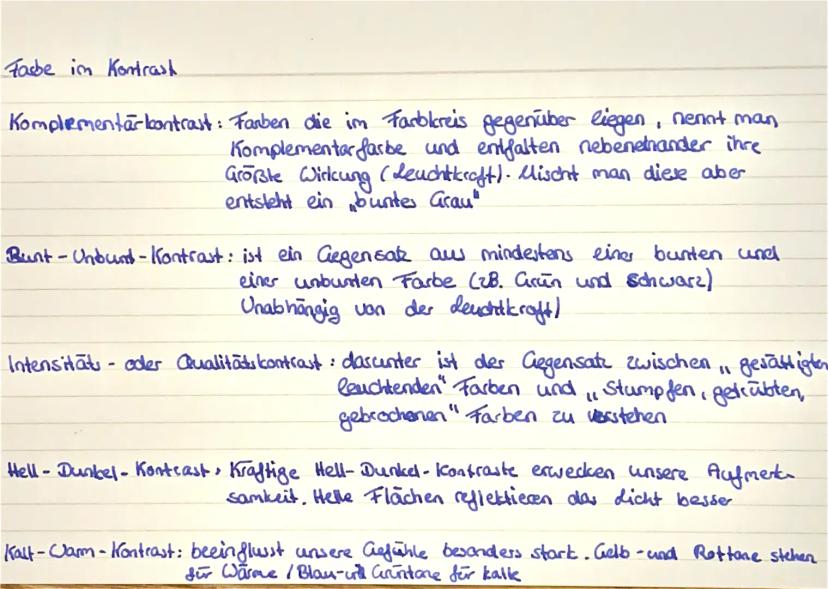 Farbe im Kontrast
Komplementärkontrast: Farben die im Farbkreis gegenüber liegen, nennt man
Komplementärfarbe und entfalten nebeneinander ihre
Größte Wirkung (Leuchtkraft). Mischt man diese aber
entsteht ein „buntes Grau"
Bunt-Unbunt-Kontrast: ist ein Gegensatz aus mindestens einer bunten und
einer unbunten Farbe (zB. Grün und schwarz)
Unabhängig von der Leuchtkraft)
Intensitäts- oder Qualitätskontrast: darunter ist der Gegensatz zwischen „gesättigten
leuchtenden" Farben und „Stumpfen, getrübten,
gebrochenen" Farben zu verstehen
Hell-Dunkel-Kontrast, Kräftige Hell-Dunkel-Kontraste erwecken unsere Aufmerk-
samkeit. Helle Flächen reflektieren das Licht besser
Kalt-Warm-Kontrast: beeinflusst unsere Gefühle besonders stark. Gelb-und Rottöne stehen
für Wärme / Blau-und Grüntöne für kälte